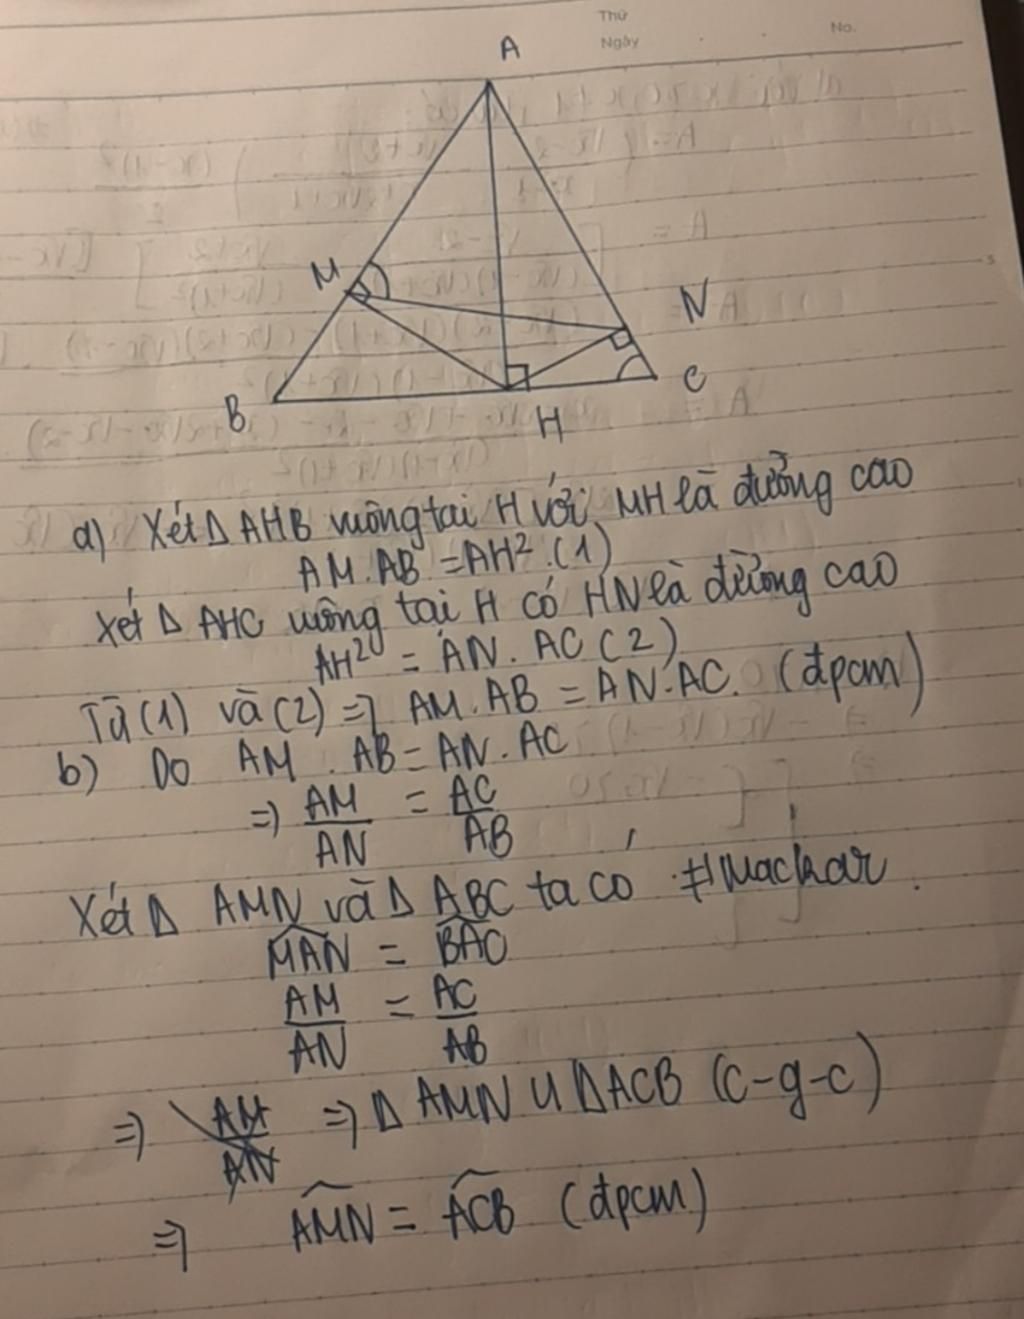 Thứ
Ngày
No.
A
M
N
B
C
H
a) Xét Δ AHB vuông tại H với MH là đường cao
AM.AB = AH² (1)
Xét Δ AHC vuông tại H có HN là đường cao
AH² = AN. AC (2)
Từ (1) và (2) => AM.AB = AN.AC. (đpcm)
b) Do AM . AB = AN . AC
=> AM/AN = AC/AB
Xét Δ AMN và Δ ABC ta có
MAN = BAC
AM/AN = AC/AB
=> AM/AN => Δ AMN ᔕ ΔACB (c-g-c)
=> AMN = ACB (đpcm)